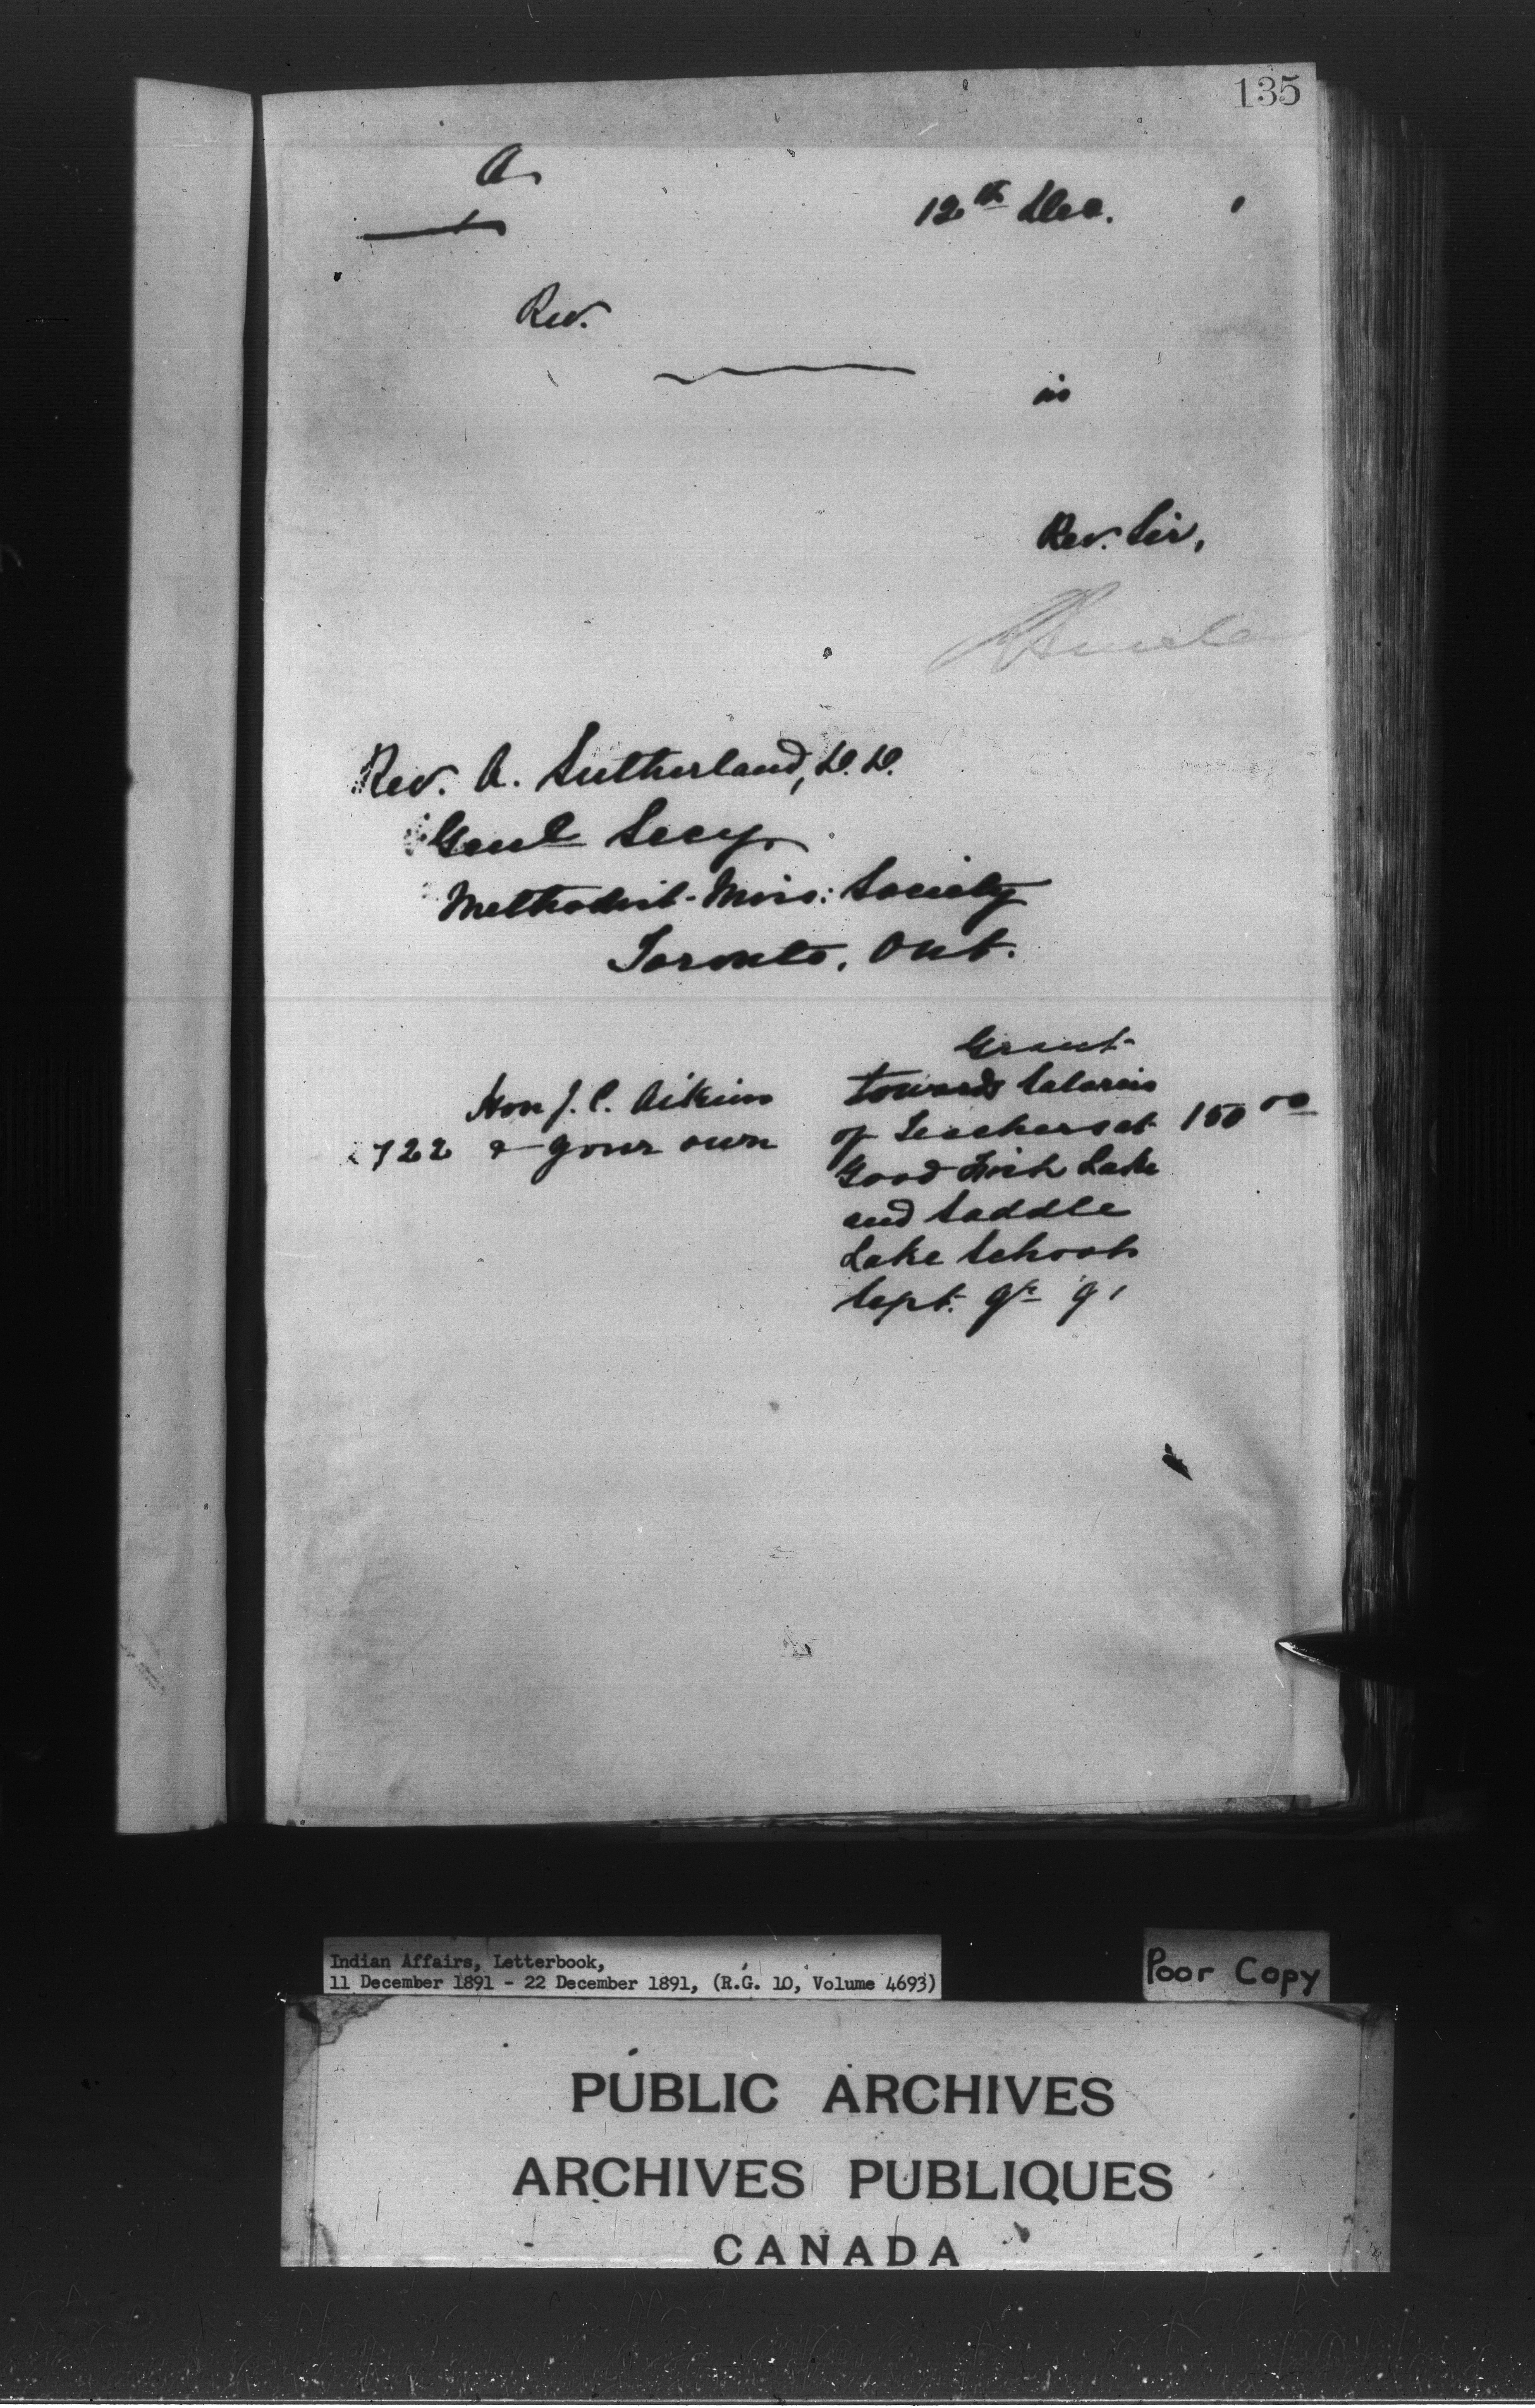 135
A.
12th Dec.
Rev.
is
Rev. Sir,
Rev. A. Sutherland, D.D.
Genl Secy.
Methodist Miss: Society
Toronto, Ont.
Grant
Hon J. C. Aikins towards Salaries
722 & your own of Teachers at 150 00
Good Fish Lake
and Saddle
Lake Schools
Sept. qr 91
Indian Affairs, Letterbook,
11 December 1891 - 22 December 1891, (R.G. 10, Volume 4693)
Poor Copy
PUBLIC ARCHIVES
ARCHIVES PUBLIQUES
CANADA